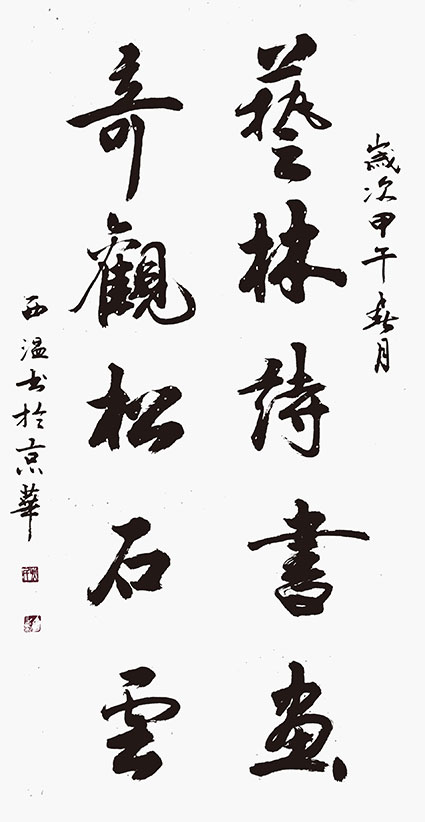 歲次甲午春月
藝林詩書畫
奇觀松石雲
西温书於京華